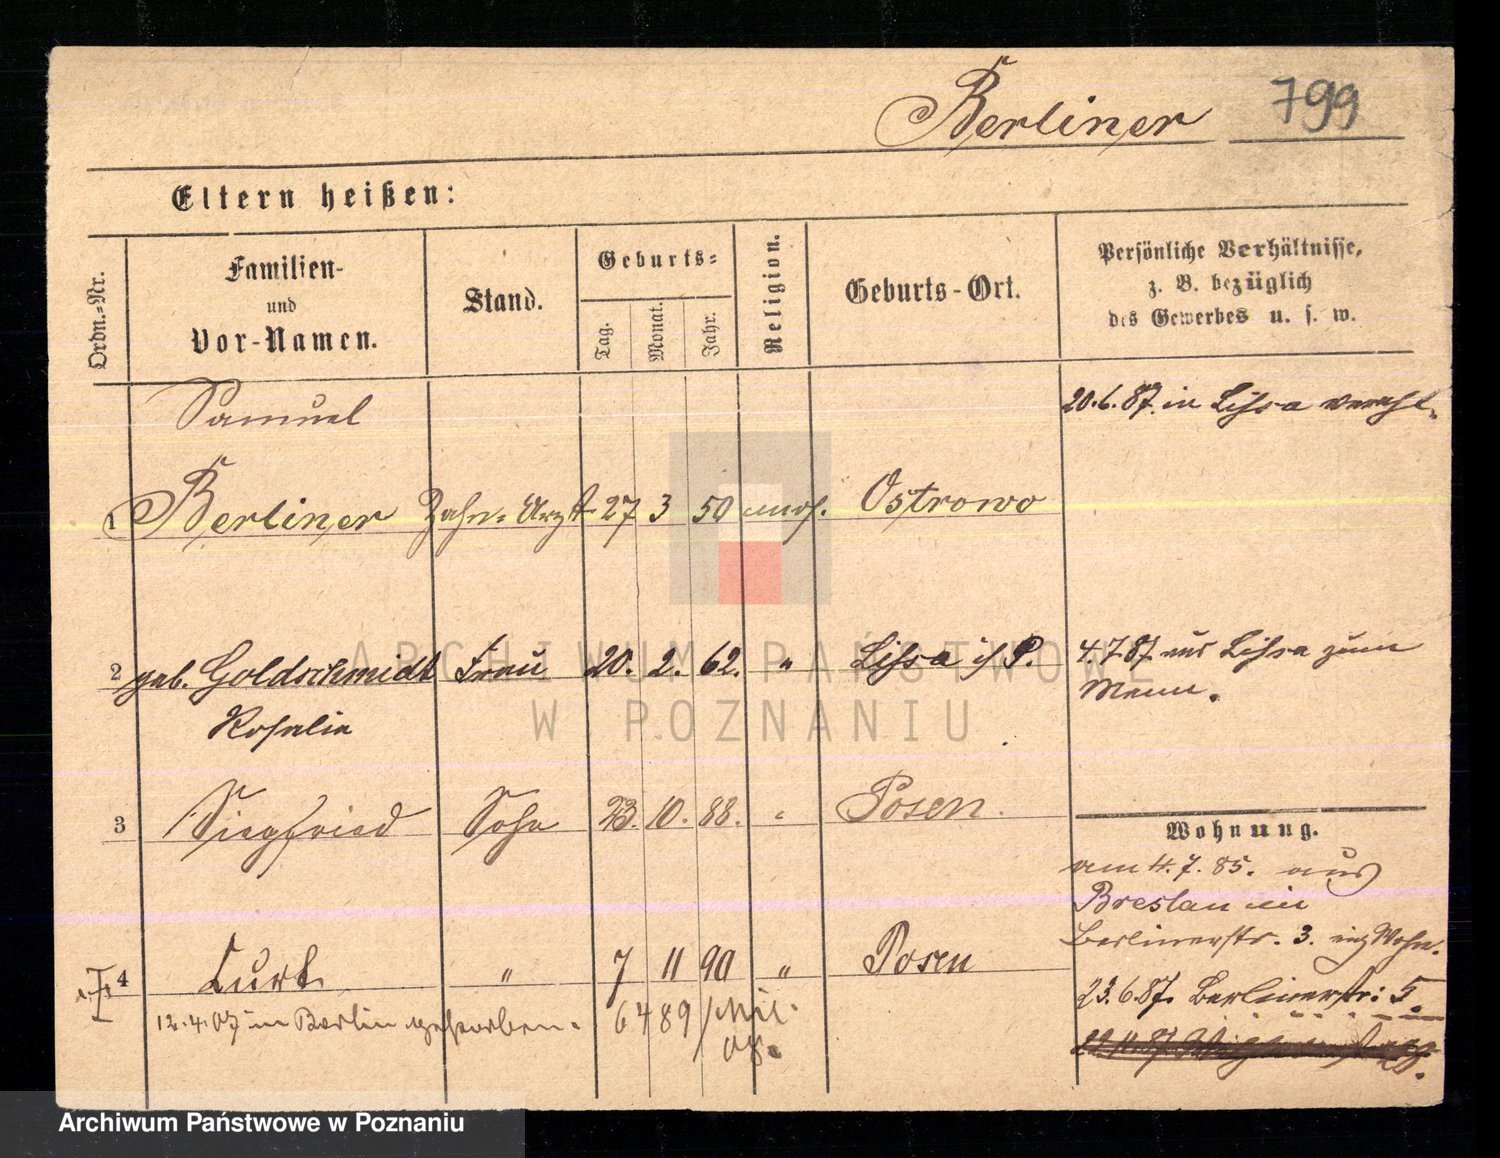 Berliner 799
Eltern heißen:
Ordn.-Nr.
Familien-
und
Vor-Namen.
Stand.
Geburts-
Tag.
Monat.
Jahr.
Religion.
Geburts-Ort.
Persönliche Verhältnisse,
z. B. bezüglich
des Gewerbes u. s. w.
Samuel
20.6.87. in Lissa verehl.
1 Berliner Zahn-Arzt 27 3 50 mos. Ostrowo
2 geb. Goldschmidt Frau 20. 2. 62. " Lissa i/P. 4.7.87 aus Lissa zum
Rosalie
Mann.
3 Siegfried Sohn 23. 10. 88. " Posen.
Wohnung.
am 4.7.85. aus
Breslau in
Berlinerstr. 3.
4 Curt " 7 11 90 " Posen
23.6.87. Berlinerstr: 5.
12.4.07 in Berlin gestorben. 6489/
ARCHIWUM PAŃSTWOWE
W POZNANIU
Archiwum Państwowe w Poznaniu